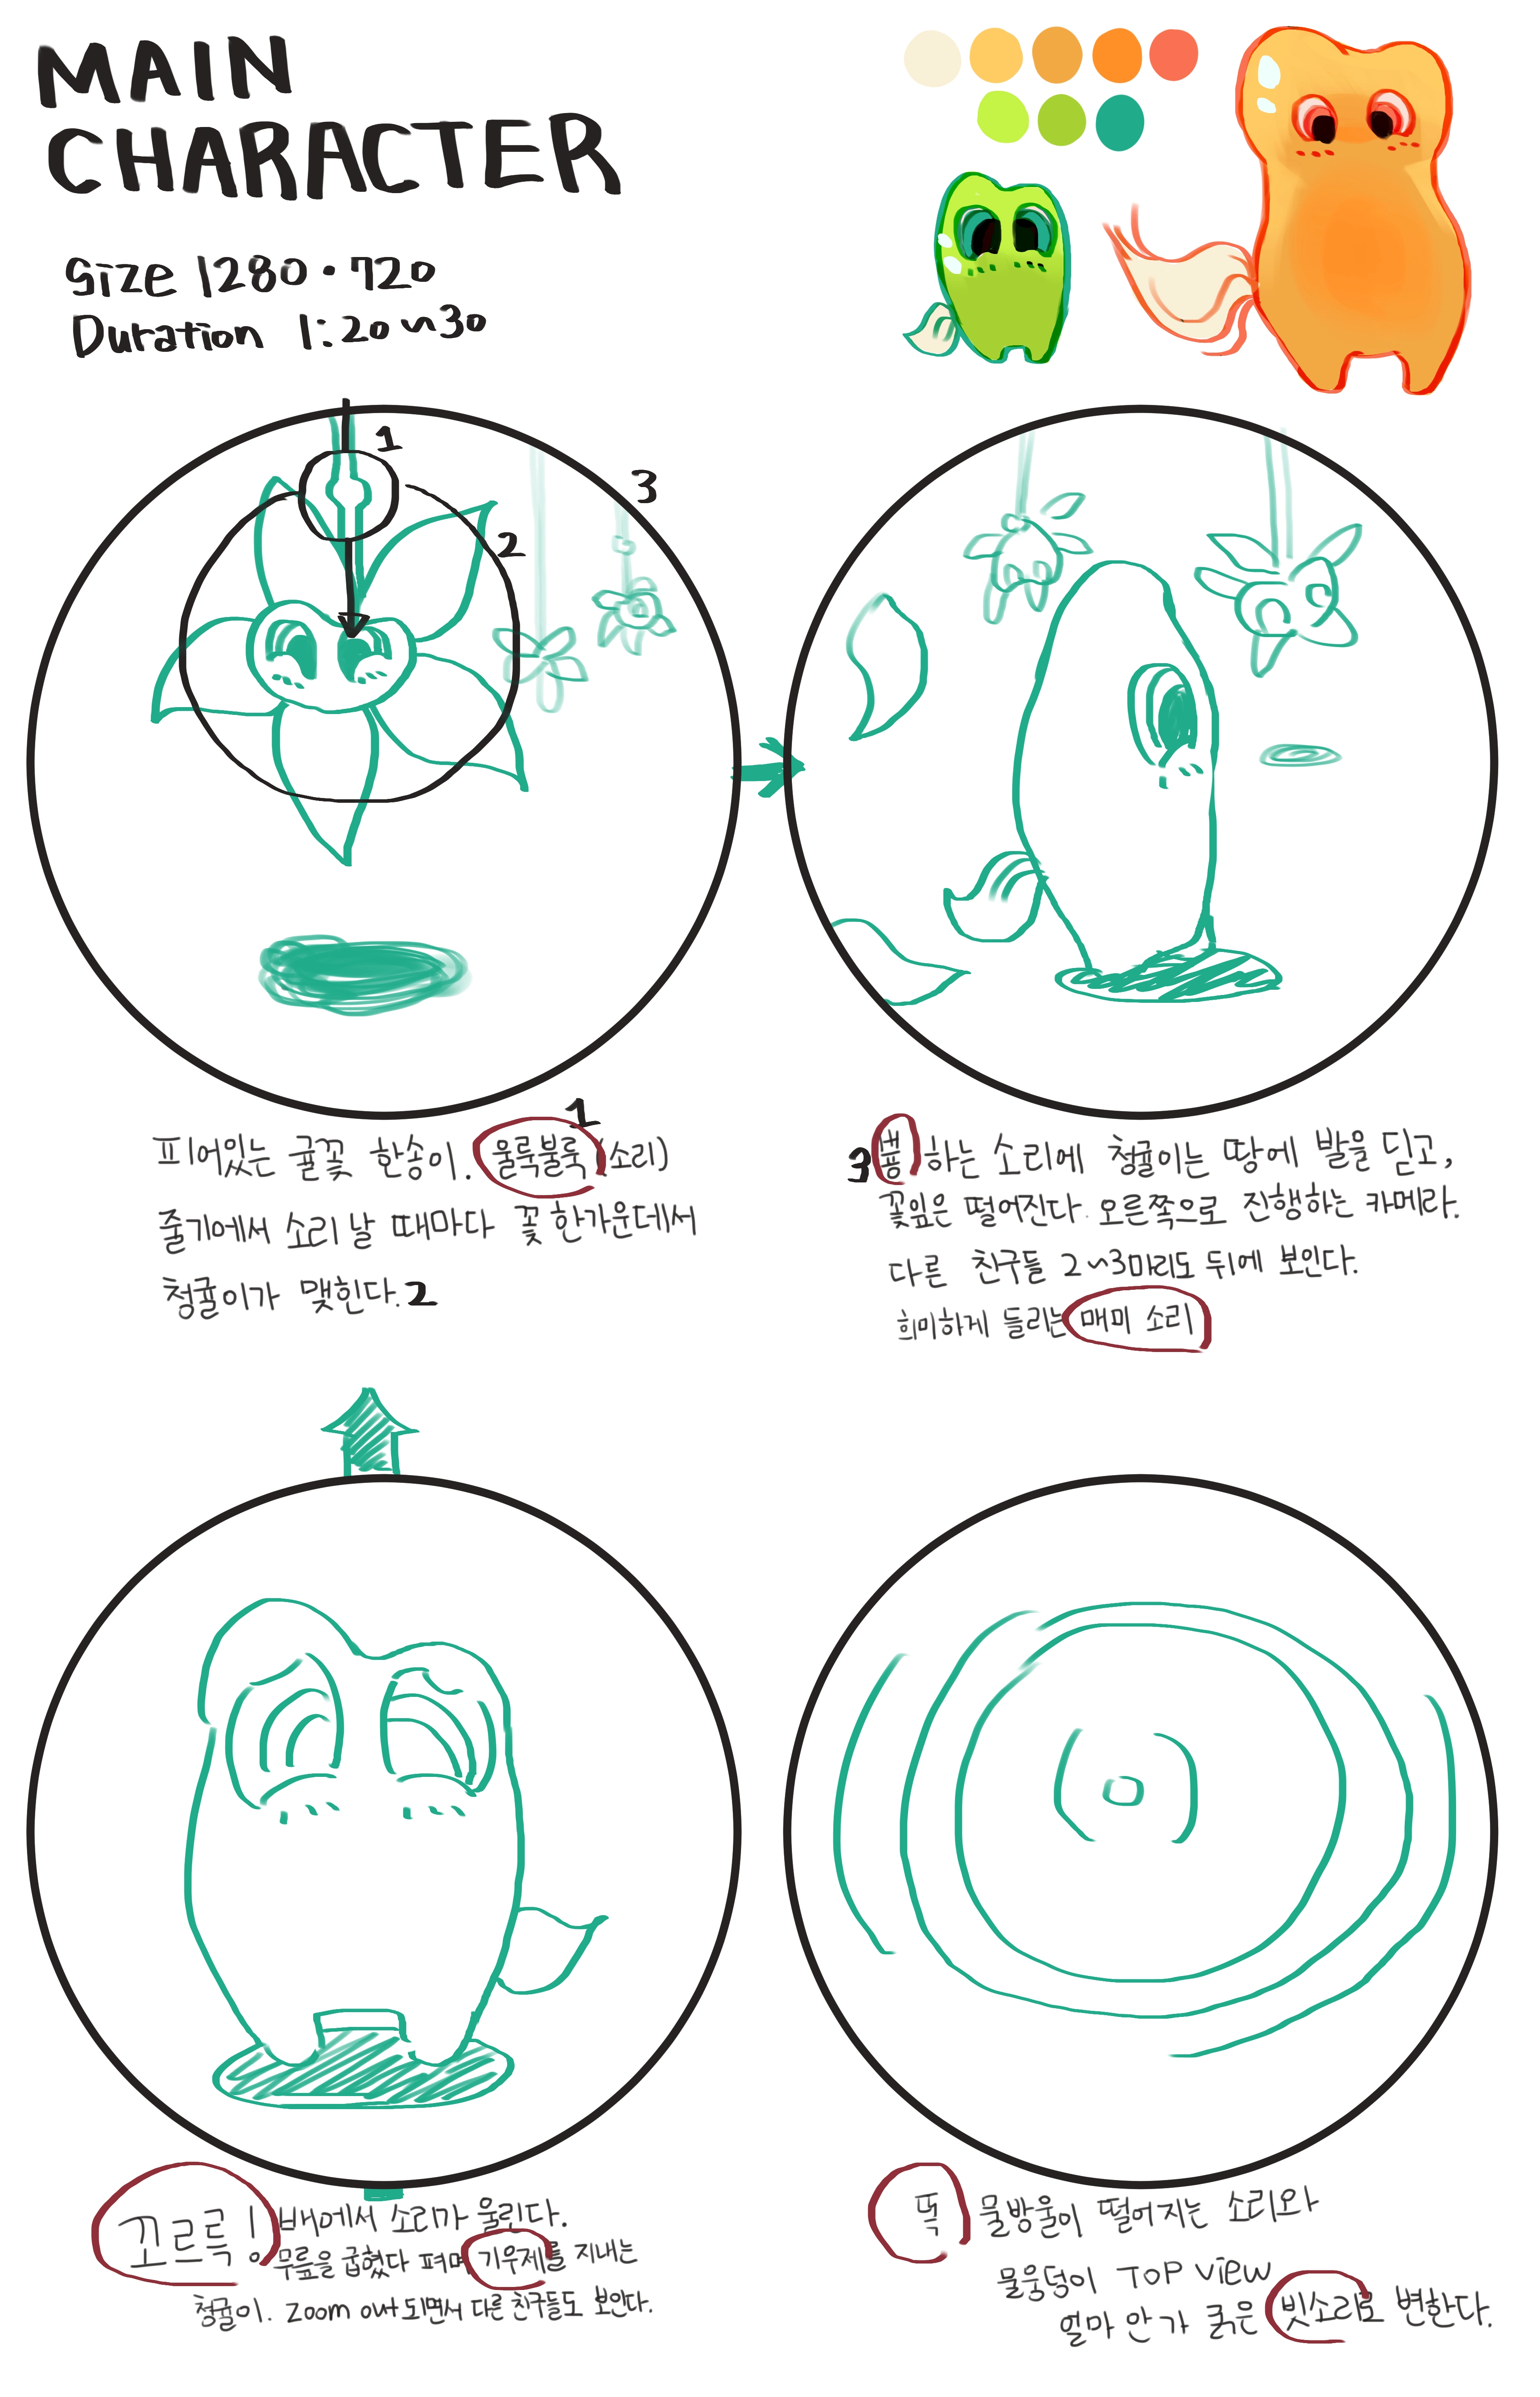 MAIN
CHARACTER
Size 1280·720
Duration 1:20~30
1
2
3
1
피어있는 귤꽃 한송이. 울룩불룩 (소리)
줄기에서 소리 날 때마다 꽃 한가운데서
청귤이가 맺힌다. 2
3 뿅 하는 소리에 청귤이는 땅에 발을 딛고,
꽃잎은 떨어진다. 오른쪽으로 진행하는 카메라.
다른 친구들 2~3마리도 뒤에 보인다.
희미하게 들리는 매미 소리
꼬르륵! 배에서 소리가 울린다.
무릎을 굽혔다 펴며 기우제를 지내는
청귤이. zoom out되면서 다른 친구들도 보인다.
똑 물방울이 떨어지는 소리와
물웅덩이 TOP View
얼마 안 가 굵은 빗소리로 변한다.